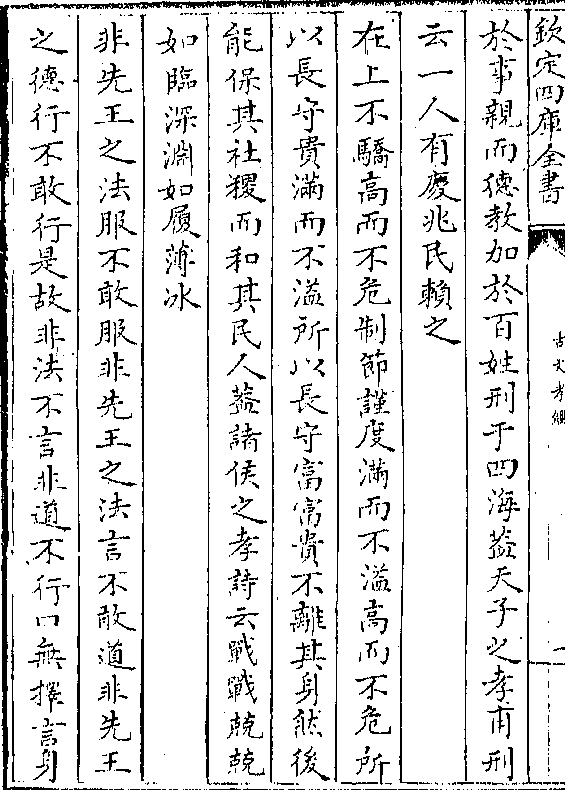 欽定四庫全書
古文孝經
一
於事親而德教加於百姓刑于四海葢天子之孝甫刑
云一人有慶兆民賴之
在上不驕高而不危制節謹度滿而不溢高而不危所
以長守貴滿而不溢所以長守富富貴不離其身然後
能保其社稷而和其民人葢諸侯之孝詩云戰戰兢兢
如臨深淵如履薄冰
非先王之法服不敢服非先王之法言不敢道非先王
之德行不敢行是故非法不言非道不行口無擇言身